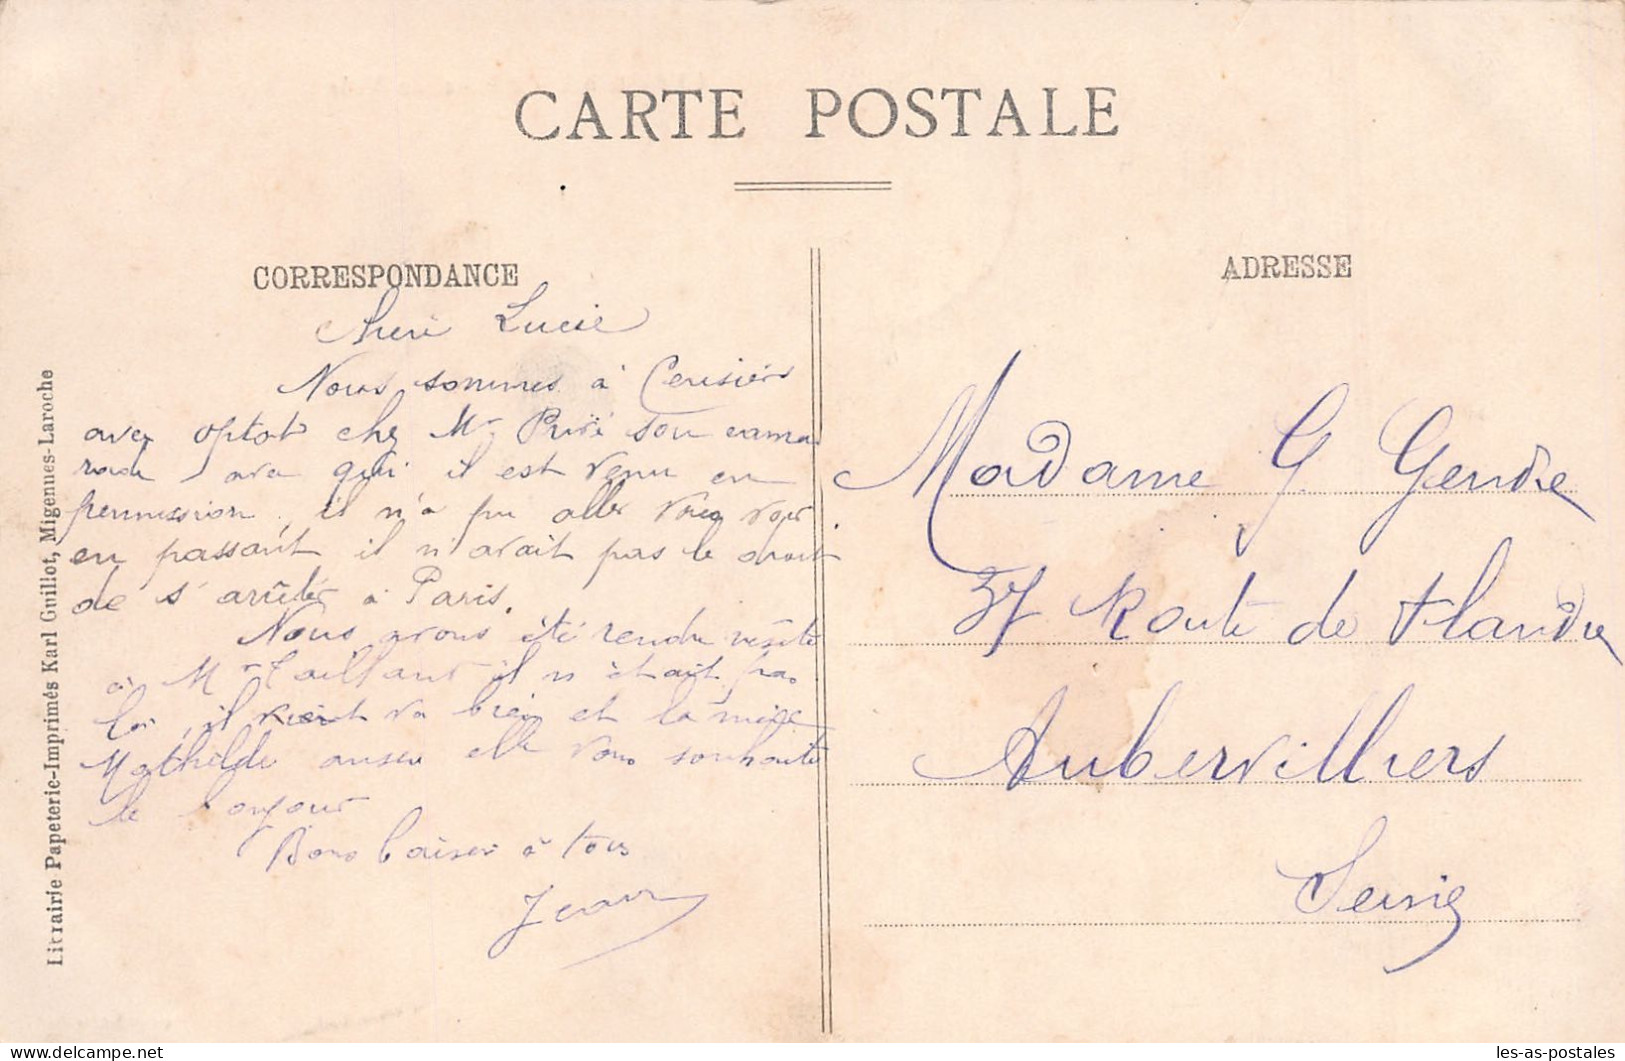 CARTE POSTALE
CORRESPONDANCE
ADRESSE
Chère Lucie
Nous sommes à Cerisiers
avec chez Mr son cama
rade avec qui il est venu en
permission, il n'a pu aller vous voir
en passant il n'avait pas le droit
de s'arrêter à Paris.
Nous avons été rendre visite
à Mr Taillant il n'était pas
là, il va bien et la mère
Mathilde aussi elle vous souhaite
le bonjour
Bons baisers à tous
Jean
Madame G Gendre
37 Route de Flandre
Aubervilliers
Seine
Librairie Papeterie-Imprimés Karl Guillot, Migennes-Laroche
les-as-postales